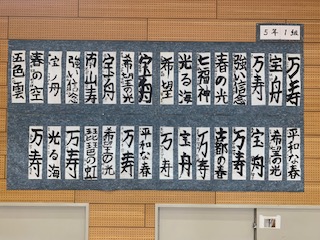 5年1組
万寿
宝舟
万寿
強い信念
春の光
七福神
光る海
希望
宝舟
希望の光
宝舟
南山寿
強い信念
宝舟
春の空
五色雲
平和な春
希望の光
宝舟
万寿
京都の春
万寿
宝舟
万寿
平和な春
万寿
希望の光
琵琶の虹
万寿
光る海
万寿